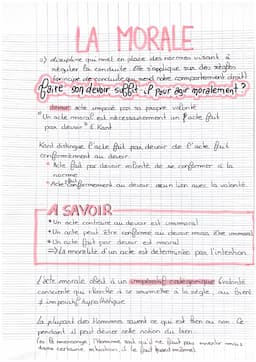 LA MORALE
discipline qui met en place des normes visant à
réguler la conduite. Elle s'applique sur des règles
(principe de conduite qui rend notre comportement droit)
Faire son devoir suffit-il pour agir moralement ?
devoir acte imposé par sa propre volonté
"Un acte moral est nécessairement un acte fait
par devoir" E. Kant
Kant distingue l'acte fait par devoir de l'acte fait
conformément au devoir
• Acte fait par devoir volonté de se conformer à la
norme
• Acte fait conformément au devoir aucun lien avec la volonté.
A SAVOIR
• Un acte contraire au devoir est immoral
• Un acte peut être conforme au devoir mais être immoral
• Un acte fait par devoir est moral
=> La moralité d'un acte est déterminée par l'intention.
L'acte morale obéit à un impératif catégorique (volonté
consciente qui cherche à se soumettre à la règle), au
d'impératif hypothétique
La plupart des Hommes savent ce qui est bien ou non. Ce
pendant il peut dévier cette notion du bien
Ex: Le mensonge, l'Homme sait qu'il ne faut pas mentir mais
dans certaine situation, il le fait quand même.